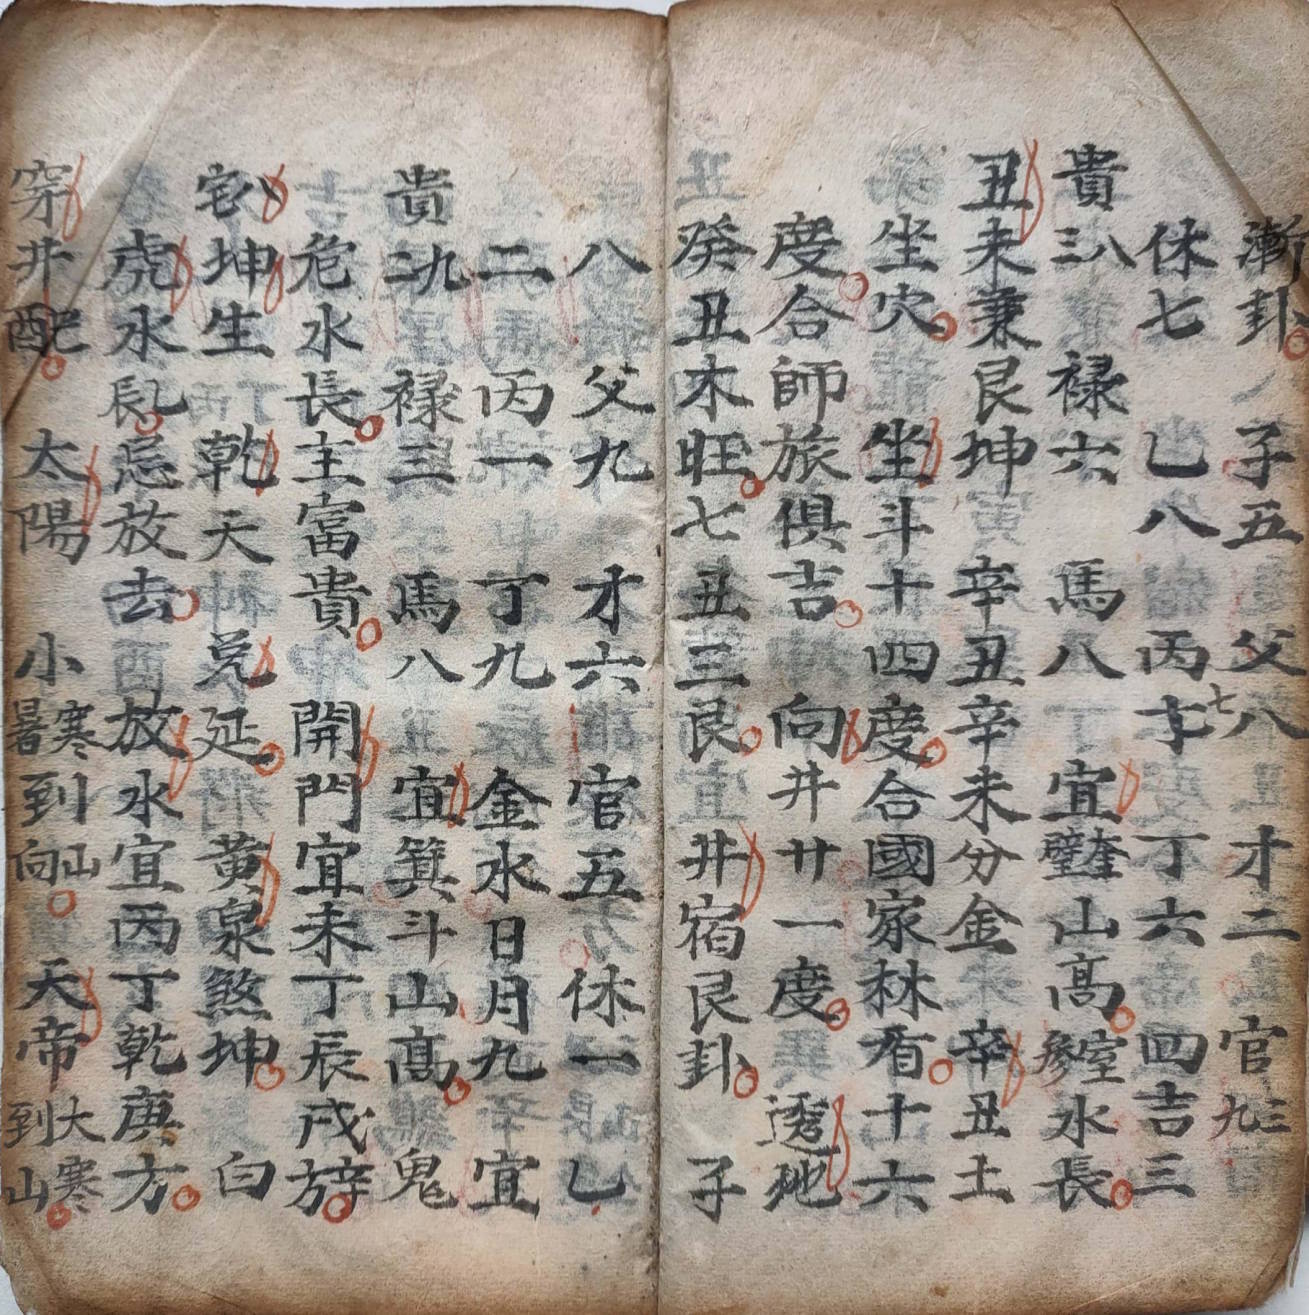 漸卦子五父八才二官三九
休七乙八丙七丁六四吉三
貴三八禄六馬八宜奎璧山高參室水長
丑未兼艮坤辛丑辛未分金辛丑土
坐穴坐斗十四度合國家林看十六
度合師旅俱吉向井廿一度透地
癸丑木旺七丑三艮井宿艮卦子
八父九才六官五休一乙
二丙一丁九金水日月九宜
貴九禄三馬八宜箕斗山高鬼
危水長主富貴開門宜未丁辰戌辛方
宅坤生乾天兌延黄泉煞坤白
虎水忌放去放水宜丙丁乾庚方
穿井配太陽小暑寒到山向天帝大寒到山